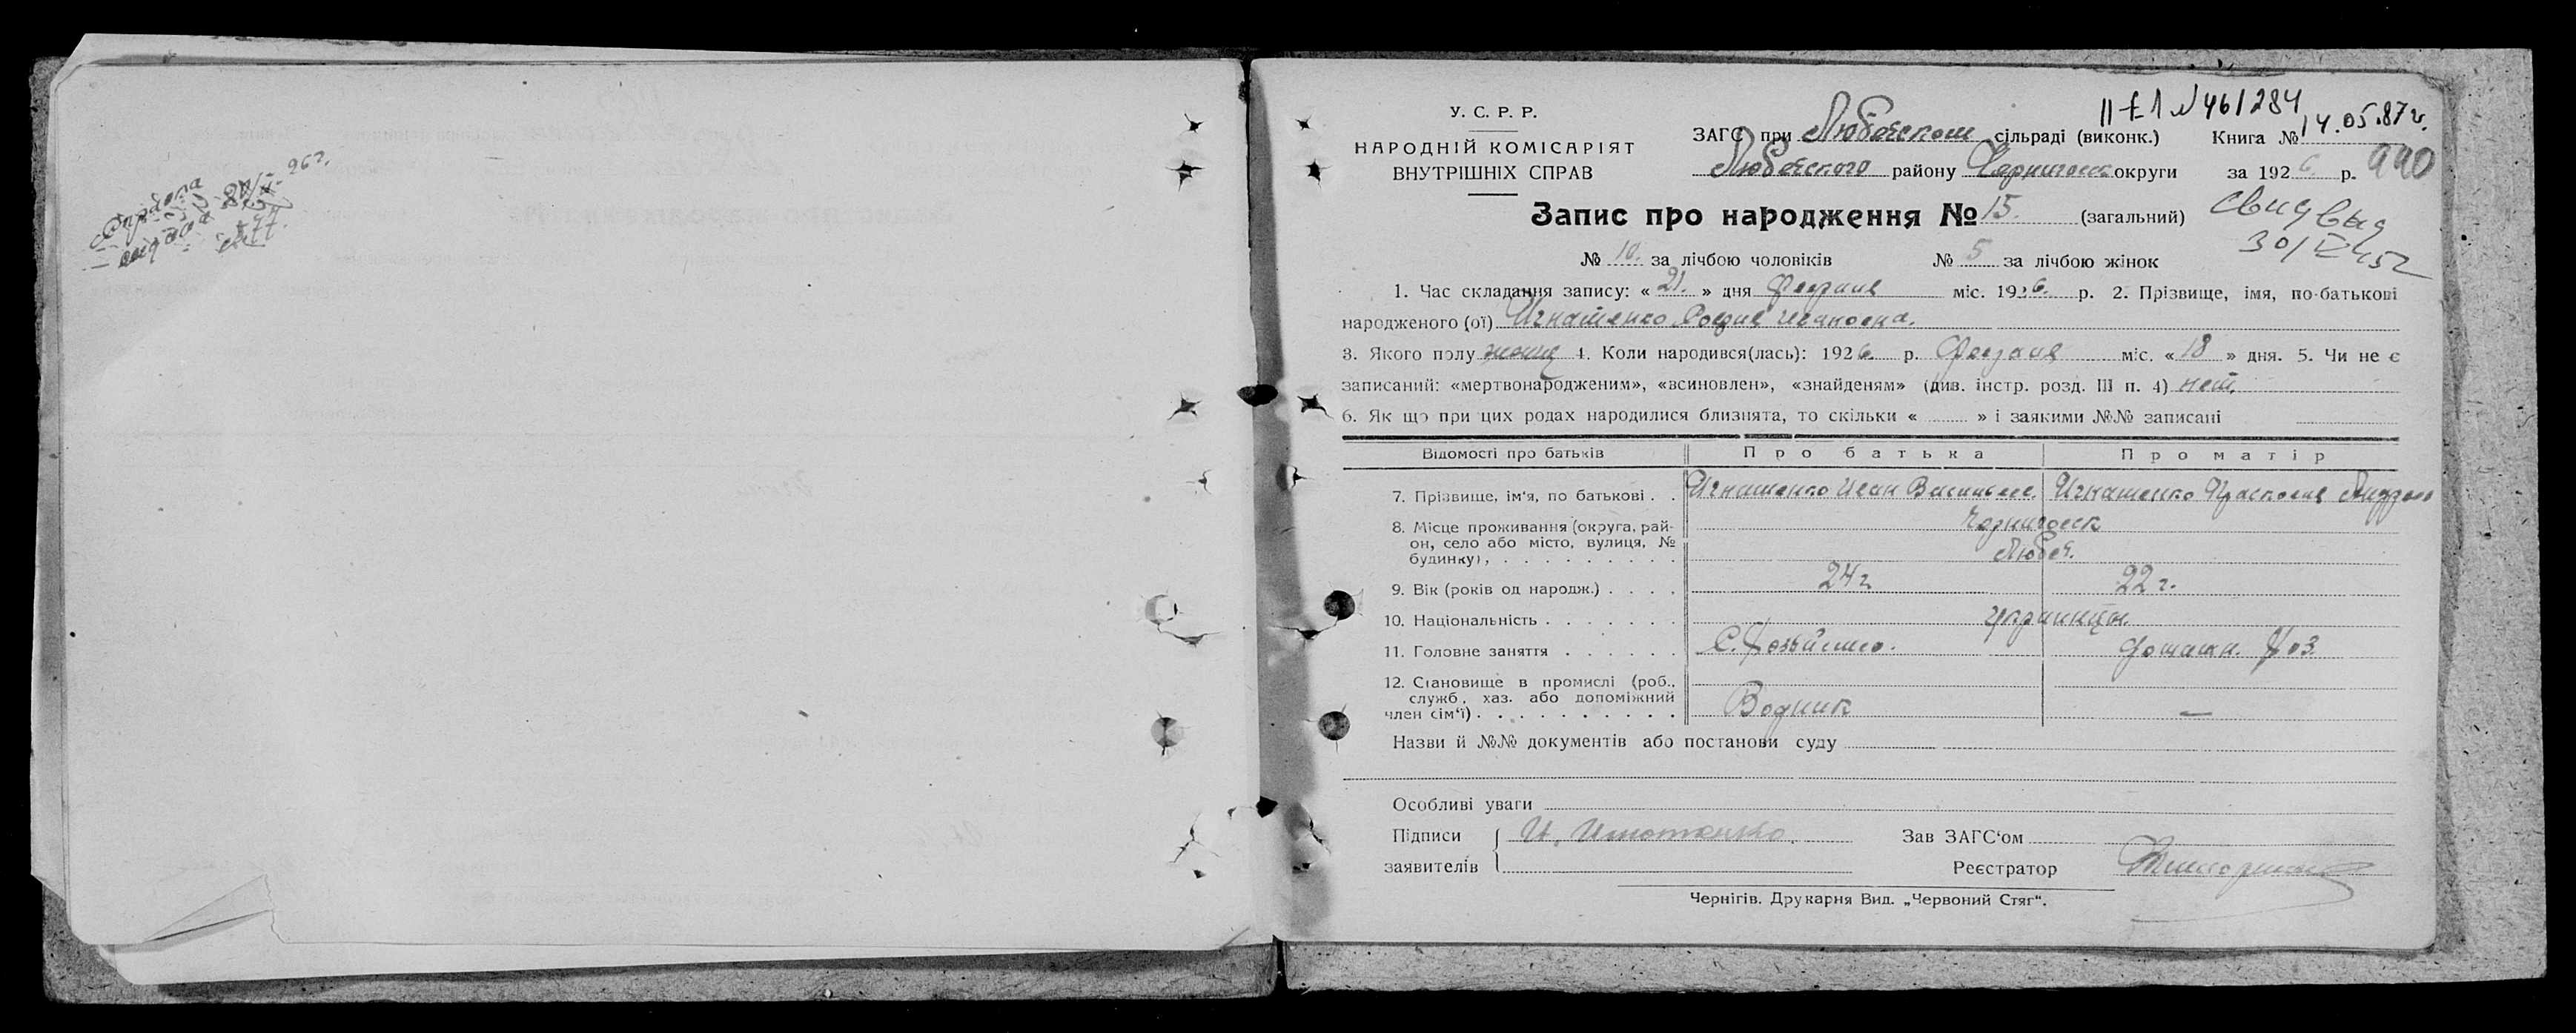 Справка
выдана
26 г.
У. С. Р. Р.
НАРОДНІЙ КОМІСАРІЯТ
ВНУТРІШНІХ СПРАВ
II-ЕЛ № 461284
14.05.87 г.
ЗАГС при Любечском сільраді (виконк.) Книга №
Любечского району Черниговск округи за 1926 р. 990
Запис про народження № 15. (загальний)
Свид выд
30/IX 452
№ 10. за лічбою чоловіків № 5 за лічбою жінок
1. Час складання запису: « 21. » дня Февраля міс. 1926. р. 2. Прізвище, імя, по-батькові
народженого (ої) Игнатенко Ивановна.
3. Якого полу женщ 4. Коли народився(лась): 1926 р. Февраля міс. « 18 » дня. 5. Чи не є
записаний: «мертвонародженим», «всиновлен», «знайденям» (див. інстр. розд. III п. 4) нет.
6. Як що при цих родах народилися близнята, то скільки « » і заякими №№ записані
Відомості про батьків Про батька Про матір
7. Прізвище, ім'я, по батькові . . Игнатенко Иван Васильев. Игнатенко Прасковия Андреев
8. Місце проживання (округа, рай-
он, село або місто, вулиця, №
будинку), . . . . . . . . .
Черниговск
Любеч.
9. Вік (років од народж.) . . . . 24 г 22 г.
10. Національність . . . . . . . Украинцы
11. Головне заняття . . . . . . С. Хозяйство. домашн. Хоз.
12. Становище в промислі (роб.,
служб., хаз. або допоміжний
член сім'ї) . . . . . . . . . . Водник —
Назви й №№ документів або постанови суду
Особливі уваги
Підписи И. Игнатенко. Зав ЗАГС'ом
заявителів Реєстратор
Чернігів. Друкарня Вид. „Червоний Стяг".